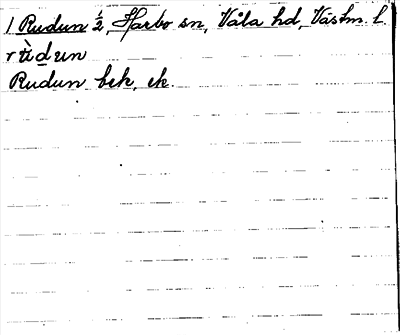 1 Rudun ½, Harbo sn, Våla hd, Västm. l.
rù̀dun
Rudun bek, ek.